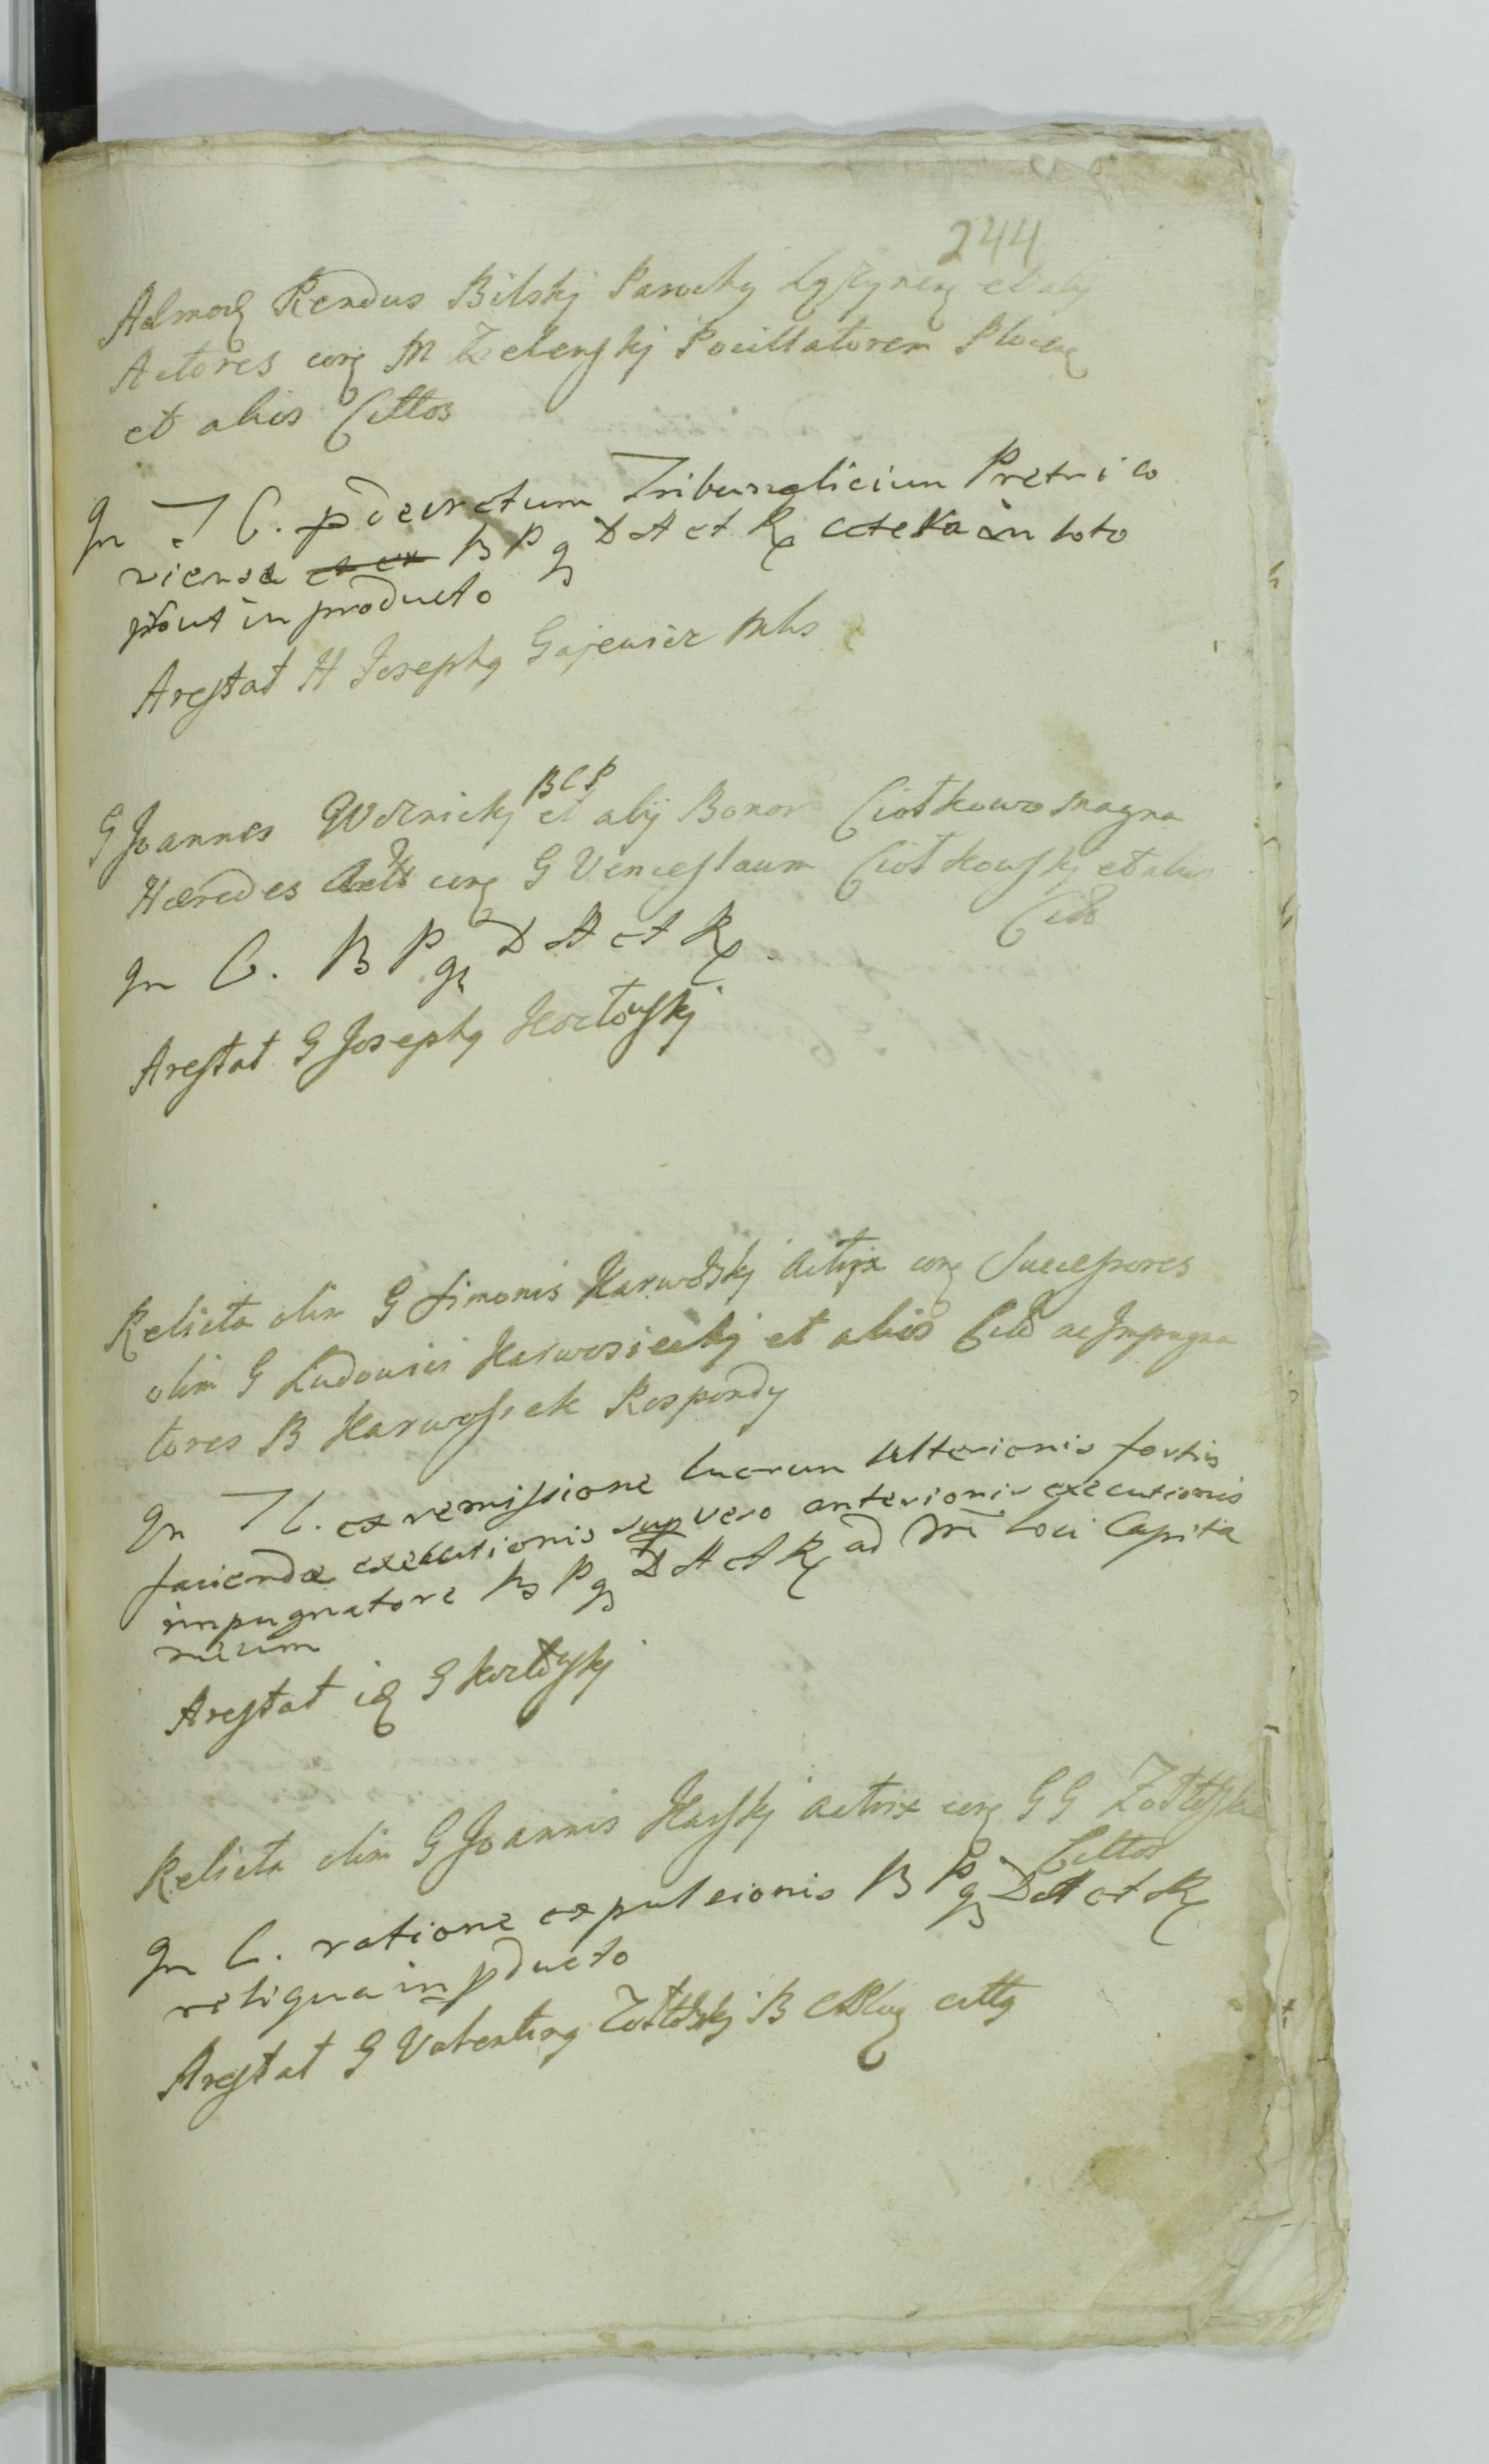 244
Admod Rendus Bilskj Parochy et alij
Actores corg M Zielenskj Pocillatorem Plocen
et alios Cittos
In T C. p decretum Tribunalicium Petrico
viense B P g D A et R cetera in toto
prout in producto
Arestat H Josephg Gajewicz Mls
BCP
G Joannes et alij Bonor Ciotkowo Magna
Hæredes Acts corg G Venceslaum Ciotkowskj et alios
Citts
In C. B P g D A et R
Arestat G Josephg Kozłowskj
Relicta olim G Simonis Karwoskj Actrix corg Successores
olim G Ludovici Karwosieckj et alios Citts ac Impugna
tores B Karwosiek Respondg
In T C. ex remissione lucrum ulterionis fortis
faciendæ executionis sup vero anterionis executionis
impugnatore B P g D A et R ad Mri Loci Capita
neum
Arestat id G Kozłowskj
Relicta olim G Joannis Karskj actrix corg G G
Cittos
In C. ratione expulsionis B P g D A et R
reliqua in pducto
Arestat G Valenting B cittg